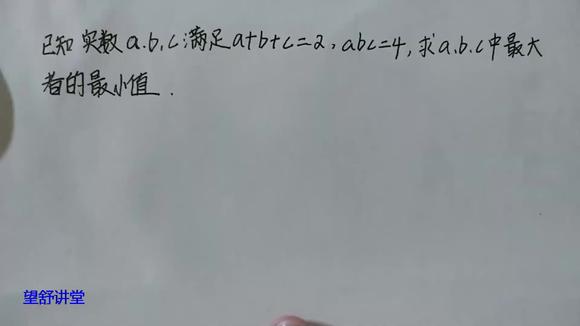 已知实数a.b.c满足a+b+c=2,abc=4,求a.b.c中最大
者的最小值.
望舒讲堂